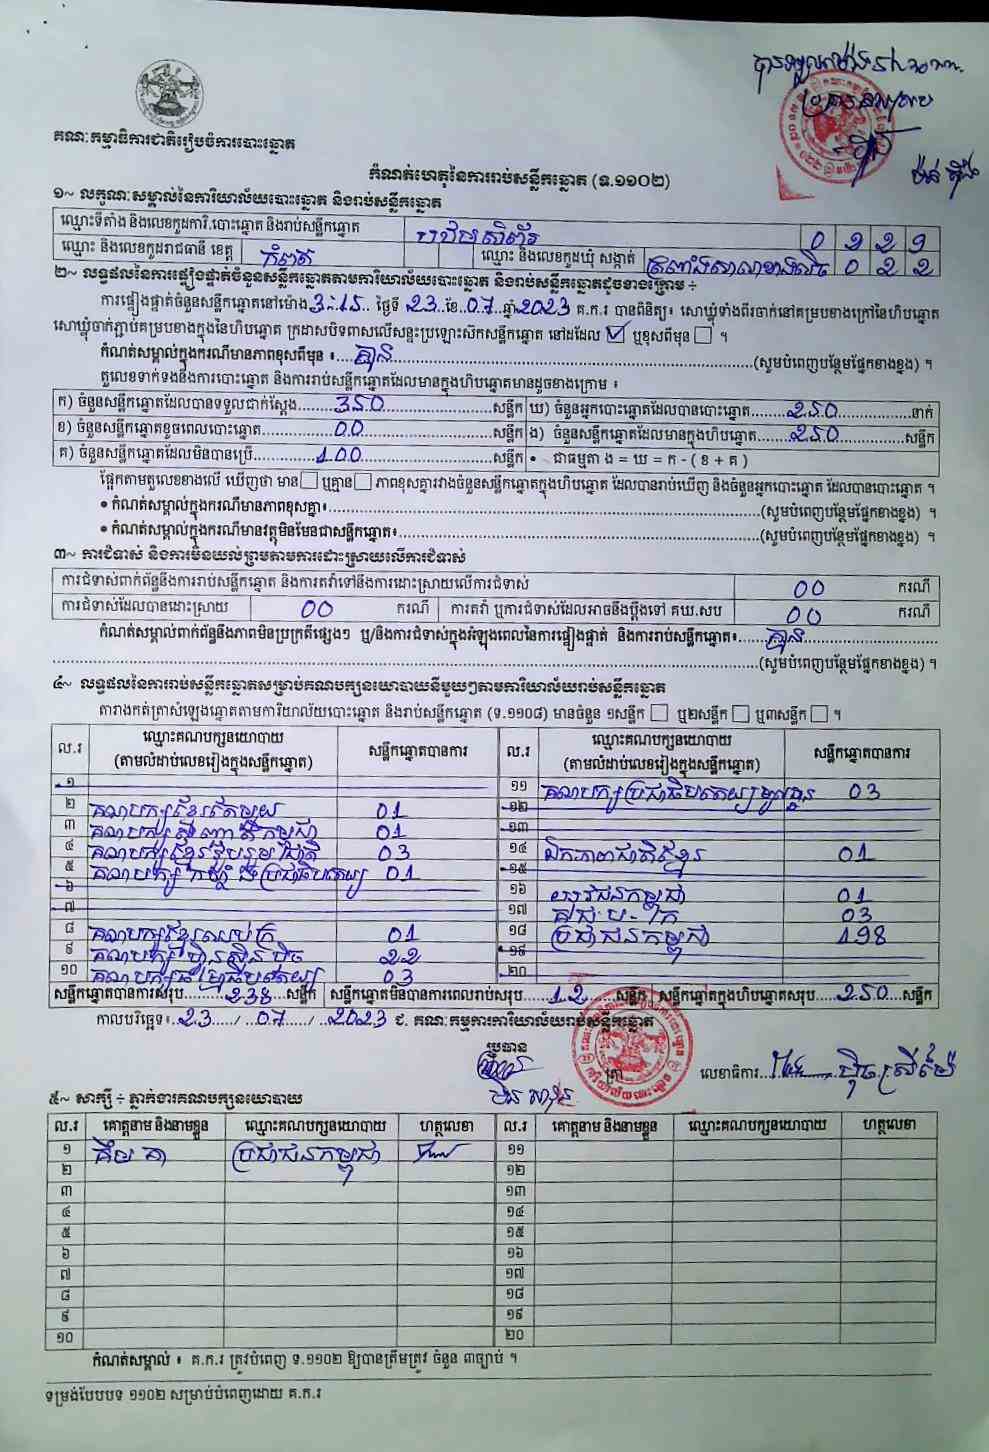 គណៈកម្មាធិការជាតិរៀបចំការបោះឆ្នោត
កំណត់ហេតុនៃការរាប់សន្លឹកឆ្នោត (ទ.១១០២)
១~ លក្ខណៈសម្គាល់នៃការិយាល័យបោះឆ្នោត និងរាប់សន្លឹកឆ្នោត
ឈ្មោះទីតាំង និងលេខកូដការិ.បោះឆ្នោត និងរាប់សន្លឹកឆ្នោត
ឈ្មោះ និងលេខកូដរាជធានី ខេត្ត កំពត ឈ្មោះ និងលេខកូដឃុំ សង្កាត់ ត្រពាំងសាលាខាងលិច 0 2 2
២~ លទ្ធផលនៃការផ្ទៀងផ្ទាត់ចំនួនសន្លឹកឆ្នោតតាមការិយាល័យបោះឆ្នោត និងរាប់សន្លឹកឆ្នោតដូចខាងក្រោម ÷
ការផ្ទៀងផ្ទាត់ចំនួនសន្លឹកឆ្នោតនៅម៉ោង 3:15 ថ្ងៃទី 23 ខែ 07 ឆ្នាំ 2023 គ.ក.រ បានពិនិត្យ៖ សោឃ្មុំទាំងពីរចាក់នៅគម្របខាងក្រៅនៃហិបឆ្នោត
សោឃ្មុំចាក់ភ្ជាប់គម្របខាងក្នុងនៃហិបឆ្នោត ក្រដាសបិទពាសលើសន្ទះប្រឡោះស៊កសន្លឹកឆ្នោត នៅដដែល ☑ ឬខុសពីមុន ☐ ។
កំណត់សម្គាល់ក្នុងករណីមានភាពខុសពីមុន ៖ គ្មាន (សូមបំពេញបន្ថែមផ្នែកខាងខ្នង) ។
តួលេខទាក់ទងនឹងការបោះឆ្នោត និងការរាប់សន្លឹកឆ្នោតដែលមានក្នុងហិបឆ្នោតមានដូចខាងក្រោម ៖
ក) ចំនួនសន្លឹកឆ្នោតដែលបានទទួលជាក់ស្តែង 350 សន្លឹក ឃ) ចំនួនអ្នកបោះឆ្នោតដែលបានបោះឆ្នោត 250 នាក់
ខ) ចំនួនសន្លឹកឆ្នោតខូចពេលបោះឆ្នោត 00 សន្លឹក ង) ចំនួនសន្លឹកឆ្នោតដែលមានក្នុងហិបឆ្នោត 250 សន្លឹក
គ) ចំនួនសន្លឹកឆ្នោតដែលមិនបានប្រើ 100 សន្លឹក • ជាធម្មតា ង = ឃ = ក - ( ខ + គ )
ផ្អែកតាមតួលេខខាងលើ ឃើញថា មាន ☐ ឬគ្មាន ☐ ភាពខុសគ្នារវាងចំនួនសន្លឹកឆ្នោតក្នុងហិបឆ្នោត ដែលបានរាប់ឃើញ និងចំនួនអ្នកបោះឆ្នោត ដែលបានបោះឆ្នោត ។
• កំណត់សម្គាល់ក្នុងករណីមានភាពខុសគ្នា៖ (សូមបំពេញបន្ថែមផ្នែកខាងខ្នង) ។
• កំណត់សម្គាល់ក្នុងករណីមានវត្ថុមិនមែនជាសន្លឹកឆ្នោត៖ (សូមបំពេញបន្ថែមផ្នែកខាងខ្នង) ។
៣~ ការជំទាស់ និងការមិនយល់ព្រមតាមការដោះស្រាយលើការជំទាស់
ការជំទាស់ពាក់ព័ន្ធនឹងការរាប់សន្លឹកឆ្នោត និងការតវ៉ាទៅនឹងការដោះស្រាយលើការជំទាស់ 00 ករណី
ការជំទាស់ដែលបានដោះស្រាយ 00 ករណី ការតវ៉ា ឬការជំទាស់ដែលអាចនឹងប្តឹងទៅ គឃ.សប 00 ករណី
កំណត់សម្គាល់ពាក់ព័ន្ធនឹងភាពមិនប្រក្រតីផ្សេងៗ ឬ/និងការជំទាស់ក្នុងអំឡុងពេលនៃការផ្ទៀងផ្ទាត់ និងការរាប់សន្លឹកឆ្នោត៖ គ្មាន
(សូមបំពេញបន្ថែមផ្នែកខាងខ្នង) ។
៤~ លទ្ធផលនៃការរាប់សន្លឹកឆ្នោតសម្រាប់គណបក្សនយោបាយនីមួយៗតាមការិយាល័យរាប់សន្លឹកឆ្នោត
តារាងកត់ត្រាសំឡេងឆ្នោតតាមការិយាល័យបោះឆ្នោត និងរាប់សន្លឹកឆ្នោត (ទ.១១០៨) មានចំនួន ១សន្លឹក ☐ ឬ២សន្លឹក ☐ ឬ៣សន្លឹក ☐ ។
ល.រ ឈ្មោះគណបក្សនយោបាយ (តាមលំដាប់លេខរៀងក្នុងសន្លឹកឆ្នោត) សន្លឹកឆ្នោតបានការ ល.រ ឈ្មោះគណបក្សនយោបាយ (តាមលំដាប់លេខរៀងក្នុងសន្លឹកឆ្នោត) សន្លឹកឆ្នោតបានការ
១ ១១ គណបក្សប្រជាធិបតេយ្យមូលដ្ឋាន 03
២ គណបក្សខ្មែរតែមួយ 01 ១២
៣ គណបក្ស កម្ពុជា 01 ១៣
៤ គណបក្សខ្មែររួបរួមជាតិ 03 ១៤ ឯកភាពជាតិខ្មែរ 01
៥ គណបក្ស ប្រជាធិបតេយ្យ 01 ១៥
៦ ១៦ យុវជនកម្ពុជា 01
៧ ១៧ 03
៨ គណបក្សខ្មែរ 01 ១៨ ប្រជាជនកម្ពុជា 198
៩ គណបក្សហ្វ៊ុនស៊ិនប៉ិច 22 ១៩
១០ គណបក្សធម្មាធិបតេយ្យ 03 ២០
សន្លឹកឆ្នោតបានការសរុប 238 សន្លឹក សន្លឹកឆ្នោតមិនបានការពេលរាប់សរុប 12 សន្លឹក សន្លឹកឆ្នោតក្នុងហិបឆ្នោតសរុប 250 សន្លឹក
កាលបរិច្ឆេទ៖ 23 / 07 / 2023 ជ. គណៈកម្មការការិយាល័យរាប់សន្លឹកឆ្នោត
ប្រធាន
ត្រា លេខាធិការ
៥~ សាក្សី ÷ ភ្នាក់ងារគណបក្សនយោបាយ
ល.រ គោត្តនាម និងនាមខ្លួន ឈ្មោះគណបក្សនយោបាយ ហត្ថលេខា ល.រ គោត្តនាម និងនាមខ្លួន ឈ្មោះគណបក្សនយោបាយ ហត្ថលេខា
១ គឹម គា ប្រជាជនកម្ពុជា ១១
២ ១២
៣ ១៣
៤ ១៤
៥ ១៥
៦ ១៦
៧ ១៧
៨ ១៨
៩ ១៩
១០ ២០
កំណត់សម្គាល់ ៖ គ.ក.រ ត្រូវបំពេញ ទ.១១០២ ឱ្យបានត្រឹមត្រូវ ចំនួន ៣ច្បាប់ ។
ទម្រង់បែបបទ ១១០២ សម្រាប់បំពេញដោយ គ.ក.រ